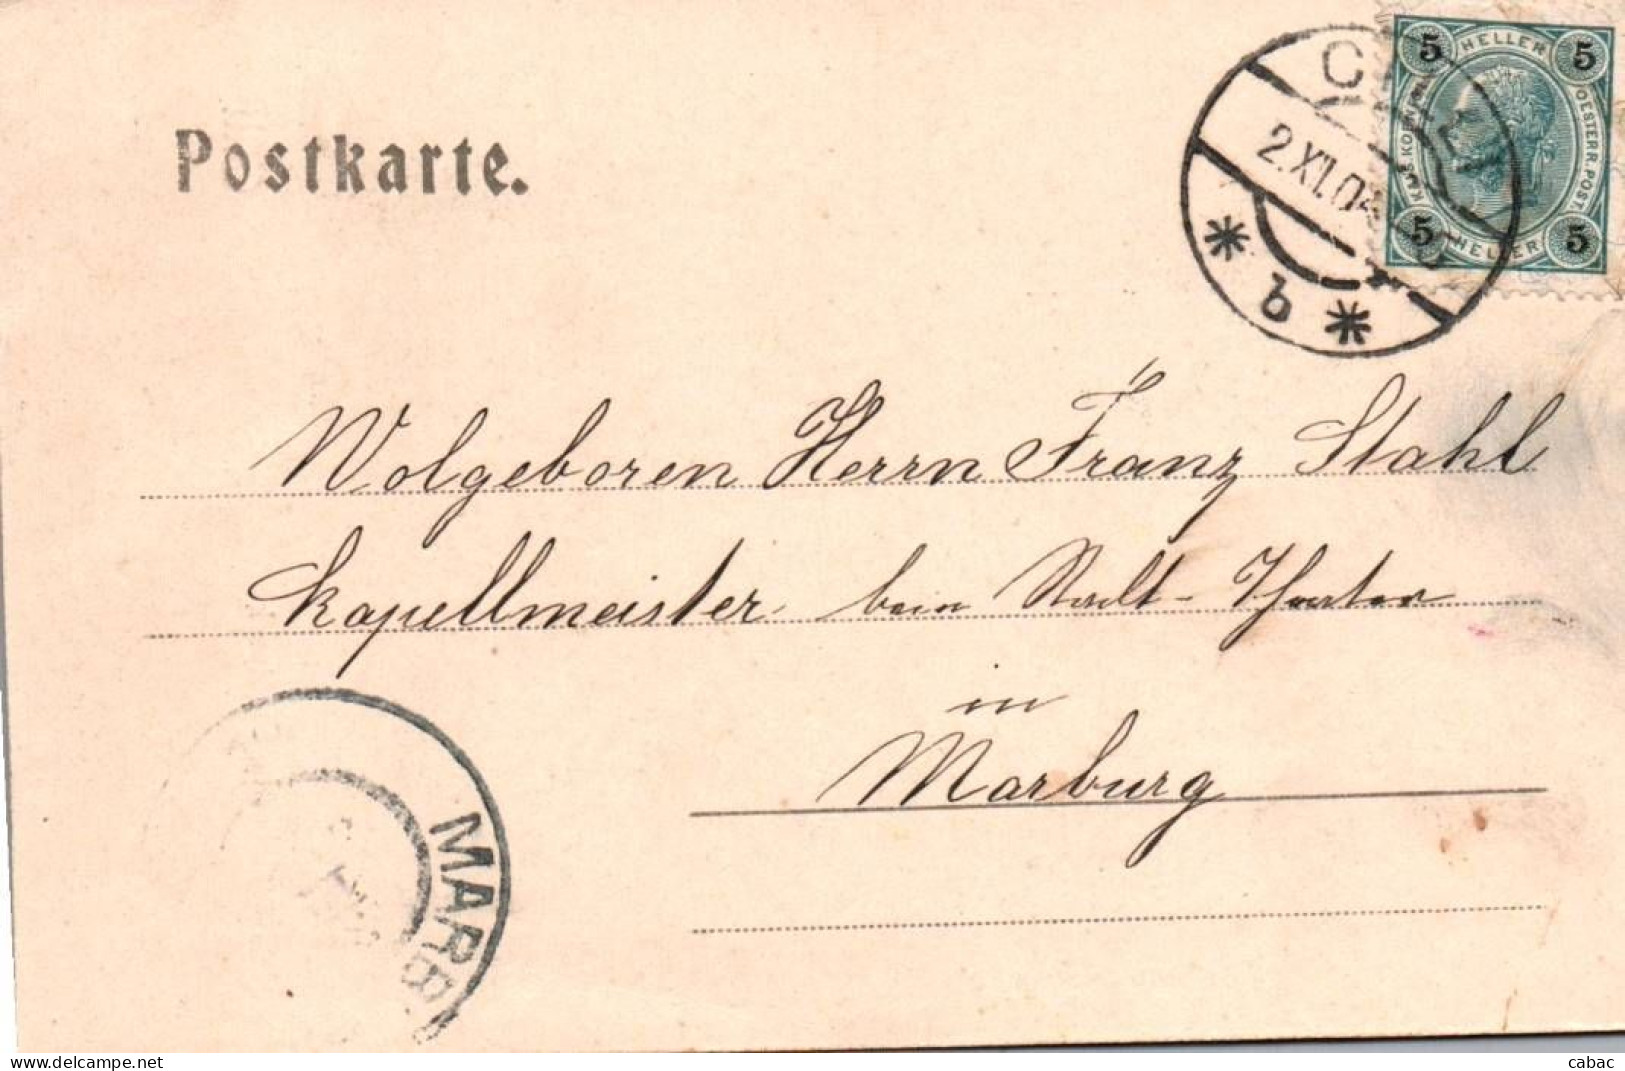 Postkarte.
5 HELLER 5
K.K. OESTERR. POST
5 HELLER 5
2.XI.04
* b *
Wolgeboren Herrn Franz Stahl
Kapellmeister beim Stadt-Theater
in
Marburg
MARB
cabac